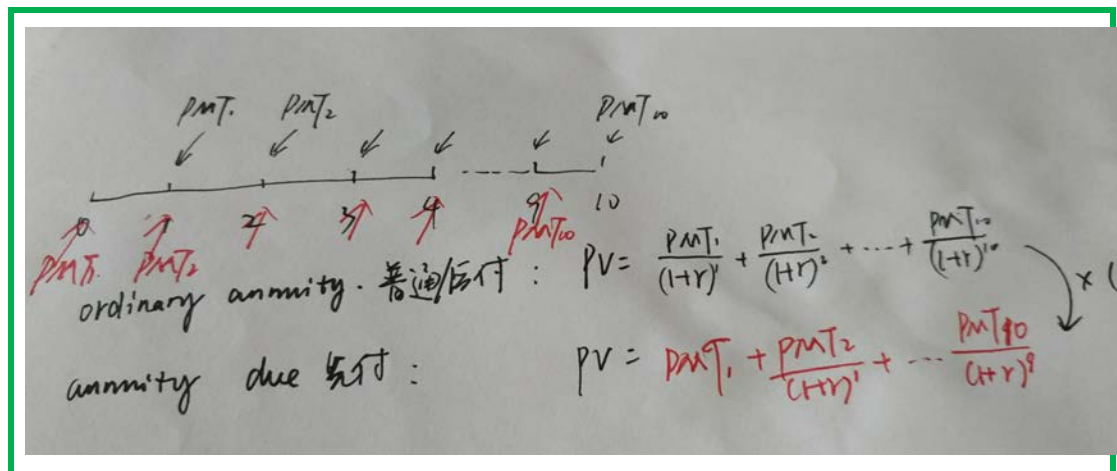 PMT₁ PMT₂ PMT₁₀
0 1 2 3 4 ------ 9 10
PMT₁ PMT₂ PMT₁₀
ordinary annuity. 普通/后付: PV = PMT₁/(1+r)¹ + PMT₂/(1+r)² + ... + PMT₁₀/(1+r)¹⁰
× (
annuity due 先付: PV = PMT₁ + PMT₂/(1+r)¹ + ... PMT₁₀/(1+r)⁹